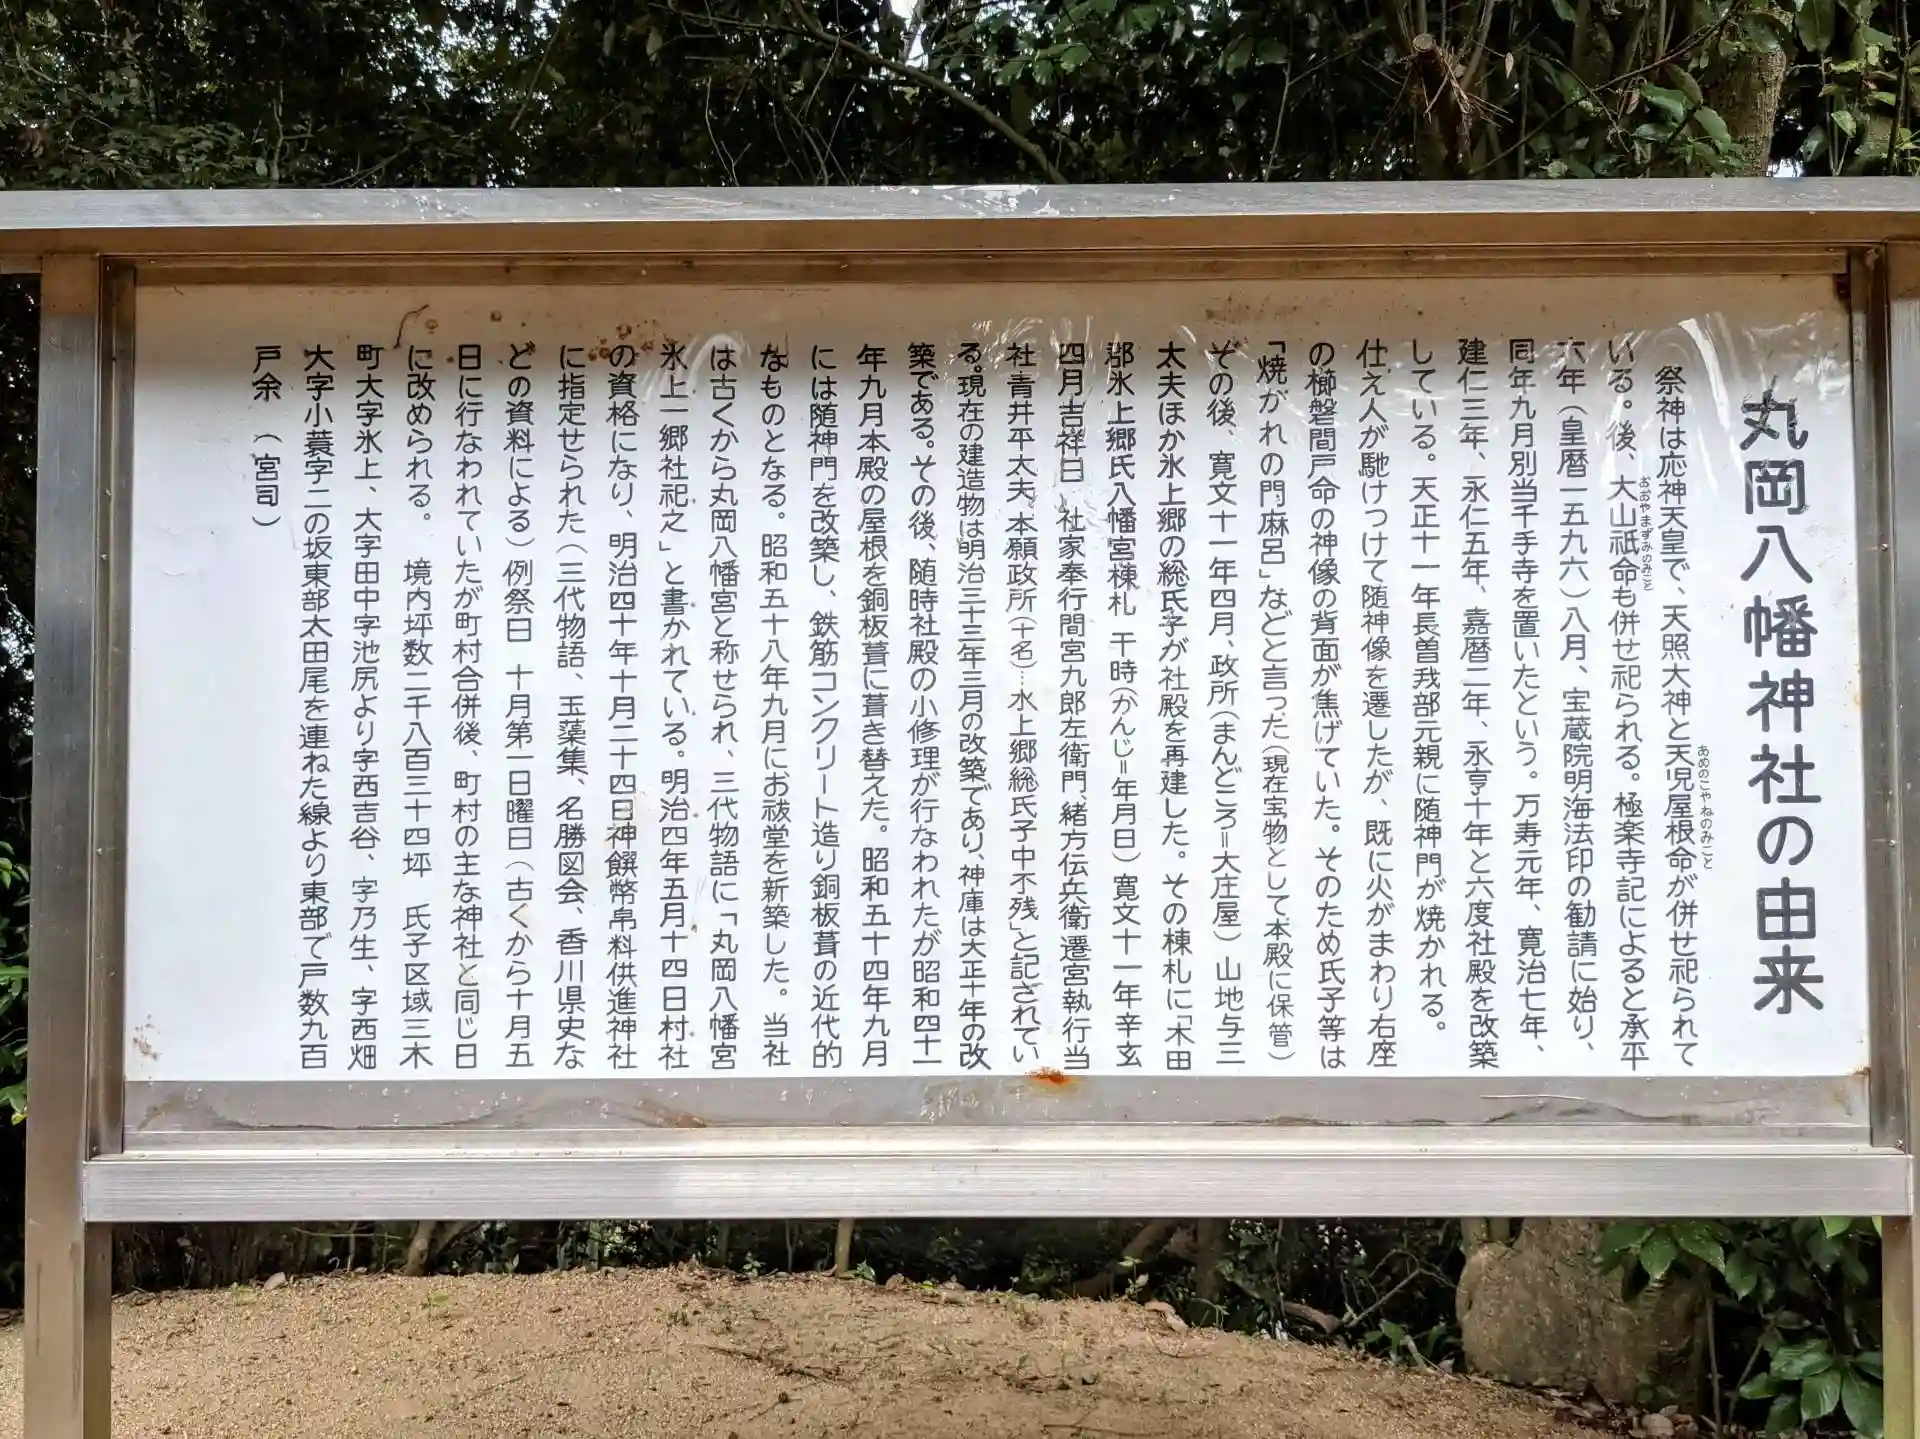 丸岡八幡神社の由来
祭神は応神天皇で、天照大神と天児屋根命が併せ祀られて
あめのこやねのみこと
いる。後、大山祇命も併せ祀られる。極楽寺記によると承平
おおやまずみのみこと
六年(皇暦一五九六)八月、宝蔵院明海法印の勧請に始り、
同年九月別当千手寺を置いたという。万寿元年、寛治七年、
建仁三年、永仁五年、嘉暦二年、永享十年と六度社殿を改築
している。天正十一年長曽我部元親に随神門が焼かれる。
仕え人が馳けつけて随神像を遷したが、既に火がまわり右座
の櫛磐間戸命の神像の背面が焦げていた。そのため氏子等は
「焼がれの門麻呂」などと言った(現在宝物として本殿に保管)
その後、寛文十一年四月、政所(まんどころ=大庄屋)山地与三
太夫ほか氷上郷の総氏子が社殿を再建した。その棟札に「木田
郡氷上郷氏八幡宮棟札 干時(かんじ=年月日)寛文十一年辛亥
四月吉祥日 社家奉行間宮九郎左衛門、緒方伝兵衛遷宮執行当
社青井平太夫。本願政所(十名)…水上郷総氏子中不残」と記されてい
る。現在の建造物は明治三十三年三月の改築であり、神庫は大正十年の改
築である。その後、随時社殿の小修理が行なわれたが昭和四十一
年九月本殿の屋根を銅板葺に葺き替えた。昭和五十四年九月
には随神門を改築し、鉄筋コンクリート造り銅板葺の近代的
なものとなる。昭和五十八年九月にお祓堂を新築した。当社
は古くから丸岡八幡宮と称せられ、三代物語に「丸岡八幡宮
氷上一郷社祀之」と書かれている。明治四年五月十四日村社
の資格になり、明治四十年十月二十四日神饌幣帛料供進神社
に指定せられた(三代物語、玉藻集、名勝図会、香川県史な
どの資料による)例祭日 十月第一日曜日(古くから十月五
日に行なわれていたが町村合併後、町村の主な神社と同じ日
に改められる。 境内坪数二千八百三十四坪 氏子区域三木
町大字氷上、大字田中字池尻より字西吉谷、字乃生、字西畑
大字小蓑字二の坂東部太田尾を連ねた線より東部で戸数九百
戸余 (宮司)